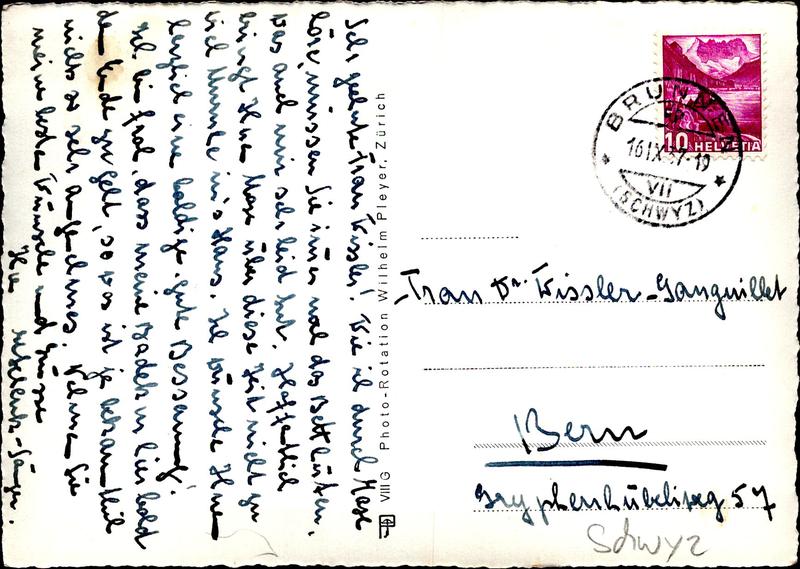 Sehr geehrte Frau Wissler! Wie ich durch Mase
höre, müssen Sie immer noch das Bett hüten,
was auch mir sehr leid tut. Hoffentlich
bringt Ihnen Mase über diese Zeit nicht zu
viel Unruhe in's Haus. Ich wünsche Ihnen
herzlich eine baldige, gute Besserung!
Ich bin froh, dass meine Badekur hier bald
dem Ende zu geht, so was ist ja bekanntlich
nicht so sehr angenehmes. Nehmen Sie
meine besten Wünsche und Grüsse
Ihr
VIII G Photo-Rotation Wilhelm Pleyer, Zürich
BRUNNEN
16 IX 37-19
VII
(SCHWYZ)
10 HELVETIA
Frau Dr. Wissler-Ganguillet
Bern
Gryphenhübeliweg 57
Schwyz